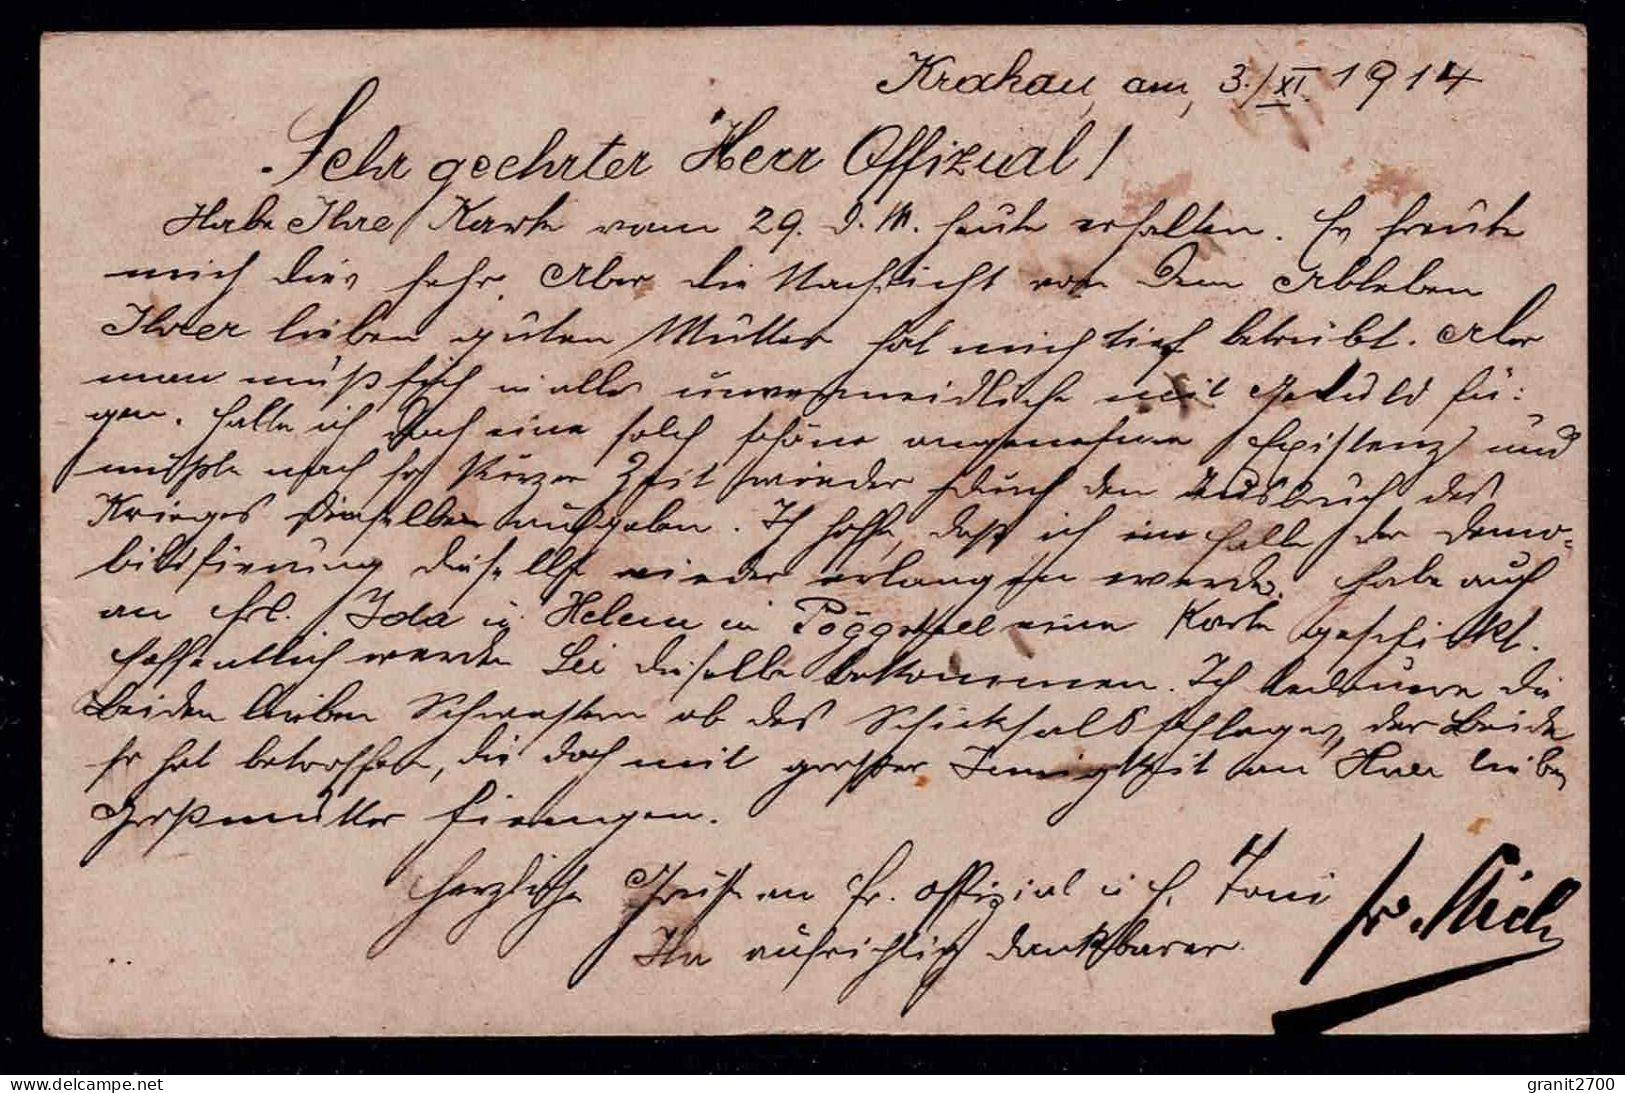 Krakau, am, 3./XI. 1914
Sehr geehrter Herr Offizial!
Habe Ihre Karte vom 29. d. M. heute erhalten. Es freute
mich dies sehr. Aber die Nachricht von dem Ableben
Ihrer lieben guten Mutter hat mich tief betrübt. Aber
man muß sich in alles unvermeidliche mit Geduld fü:
gen. Hatte ich doch eine solch schöne angenehme Existenz und
mußte nach so kurzer Zeit wieder durch den Ausbruch des
Krieges dieselbe aufgeben. Ich hoffe, daß ich im Falle der Demo-
bilisierung dieselbe wieder erlangen werde. Habe auch
an Frl. Ida u. Helene in Pöggstall eine Karte geschickt.
Hoffentlich werden Sie dieselbe bekommen. Ich bedauere die
beiden lieben Schwestern ob des Schicksalsschlages, der beide
so hat betroffen, die doch mit großer Innigkeit an Ihrer lieben
Großmutter hiengen.
Herzliche Grüße an Fr. Offizial u. F. Toni
Ihr aufrichtig dankbarer
www.delcampe.net
granit2700